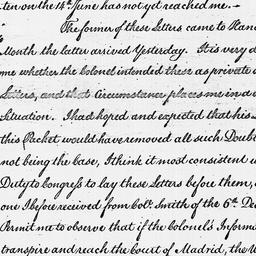 ten on the 14th June has not yet reached me.—
The former of these Letters came to Hand
Month the latter arrived Yesterday. It is very d
me whether the Colonel intended these as private o
Letters, and that Circumstance places me in a d
Situation. I had hoped and expected that his L
this Packet would have removed all such Doub
not being the Case, I think it most consistent w
Duty to Congress to lay these Letters before them,
one I before received from Col. Smith of the 6th. De
Permit me to observe that if the Colonel's Inform
transpire and reach the Court of Madrid, the